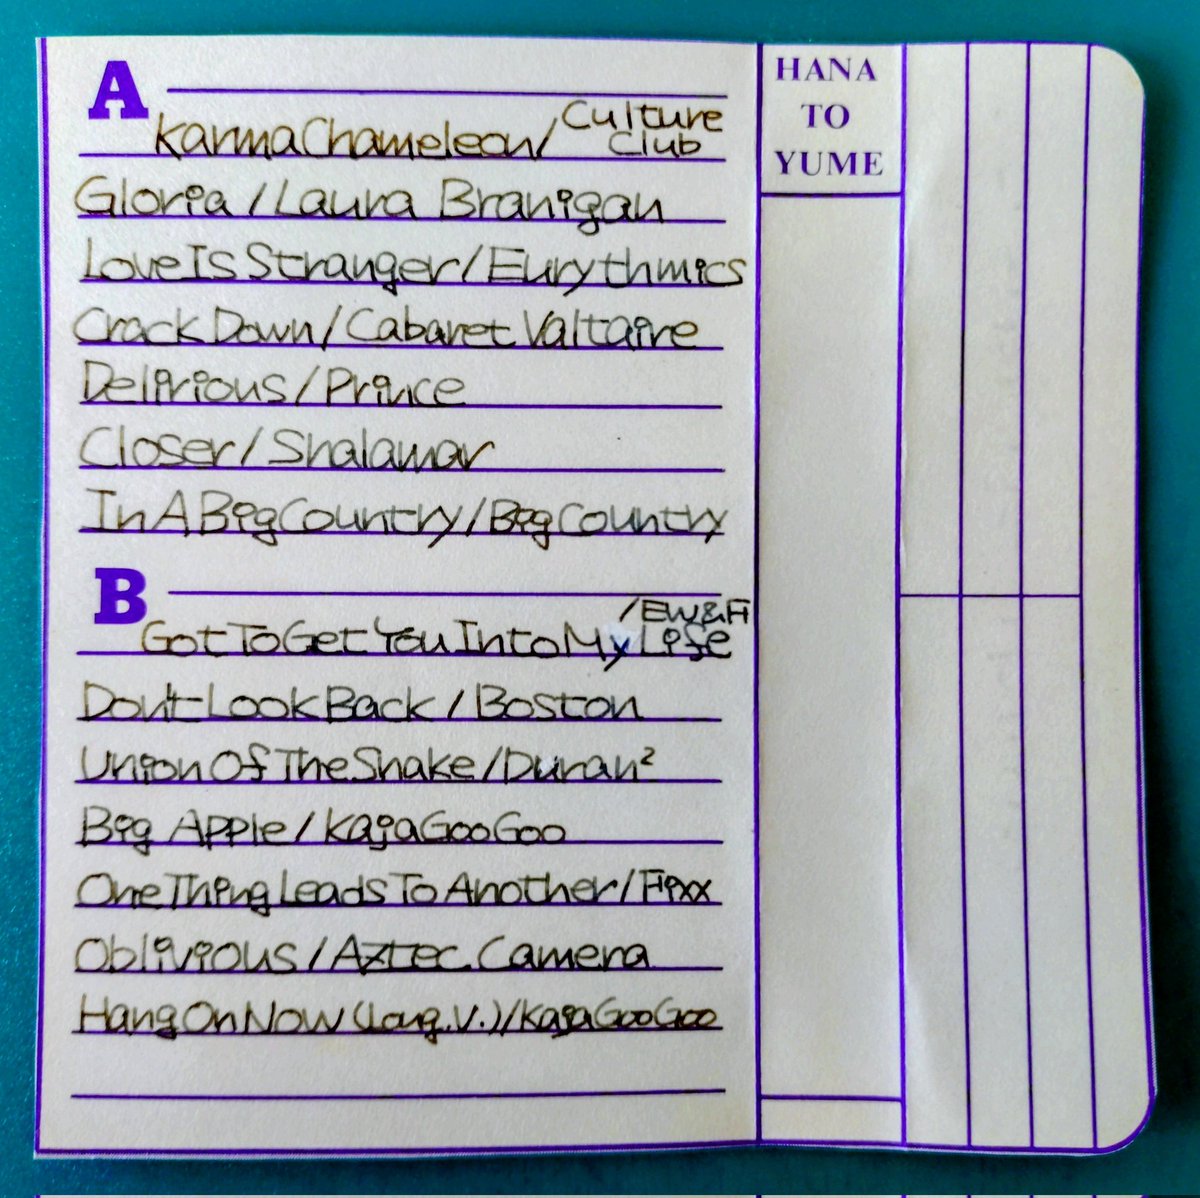 A
Karma Chameleon/ Culture Club
Gloria / Laura Branigan
Love Is Stranger / Eurythmics
Crack Down / Cabaret Valtaire
Delirious / Prince
Closer / Shalamar
In A Big Country / Big Country
B
Got To Get You Into My Life /EW&F
Don't Look Back / Boston
Union Of The Snake / Duran²
Big Apple / KajaGooGoo
One Thing Leads To Another / Fixx
Oblivious / Aztec Camera
Hang On Now (Long.V.) / KajaGooGoo
HANA
TO
YUME